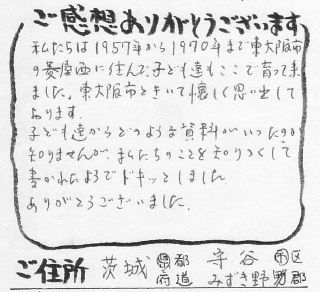 ご感想ありがとうございます
私たちは1957年から1970年まで東大阪市
の菱屋西に住んで、子ども達もここで育って来
ました。東大阪市ときいて懐しく思い出して
おります。
子ども達からどのような資料がいったのか
知りませんが、まるで私たちのことを知りつくして
書かれたようでドキッとしました
ありがとうございました。
ご住所 茨城 県 都 府 道 守谷 市 区 みずき野 郡